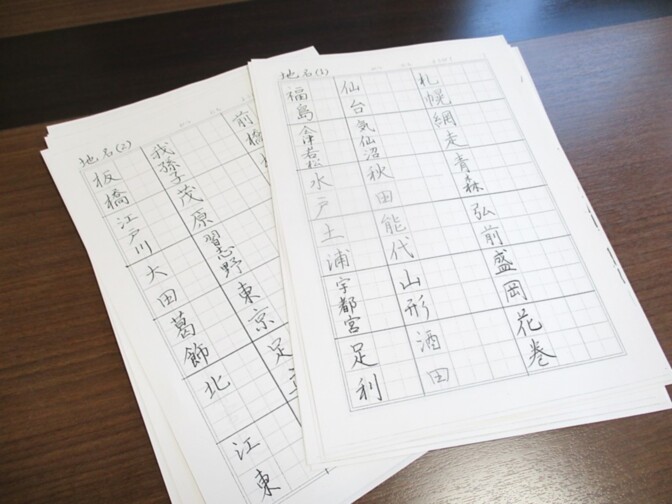 地名(1)
札幌
網走
青森
弘前
盛岡
花巻
仙台
気仙沼
秋田
能代
山形
酒田
福島
会津若松
水戸
土浦
宇都宮
足利
地名(2)
前橋
我孫子
茂原
習志野
東京
足
板橋
江戸川
大田
葛飾
北
江東